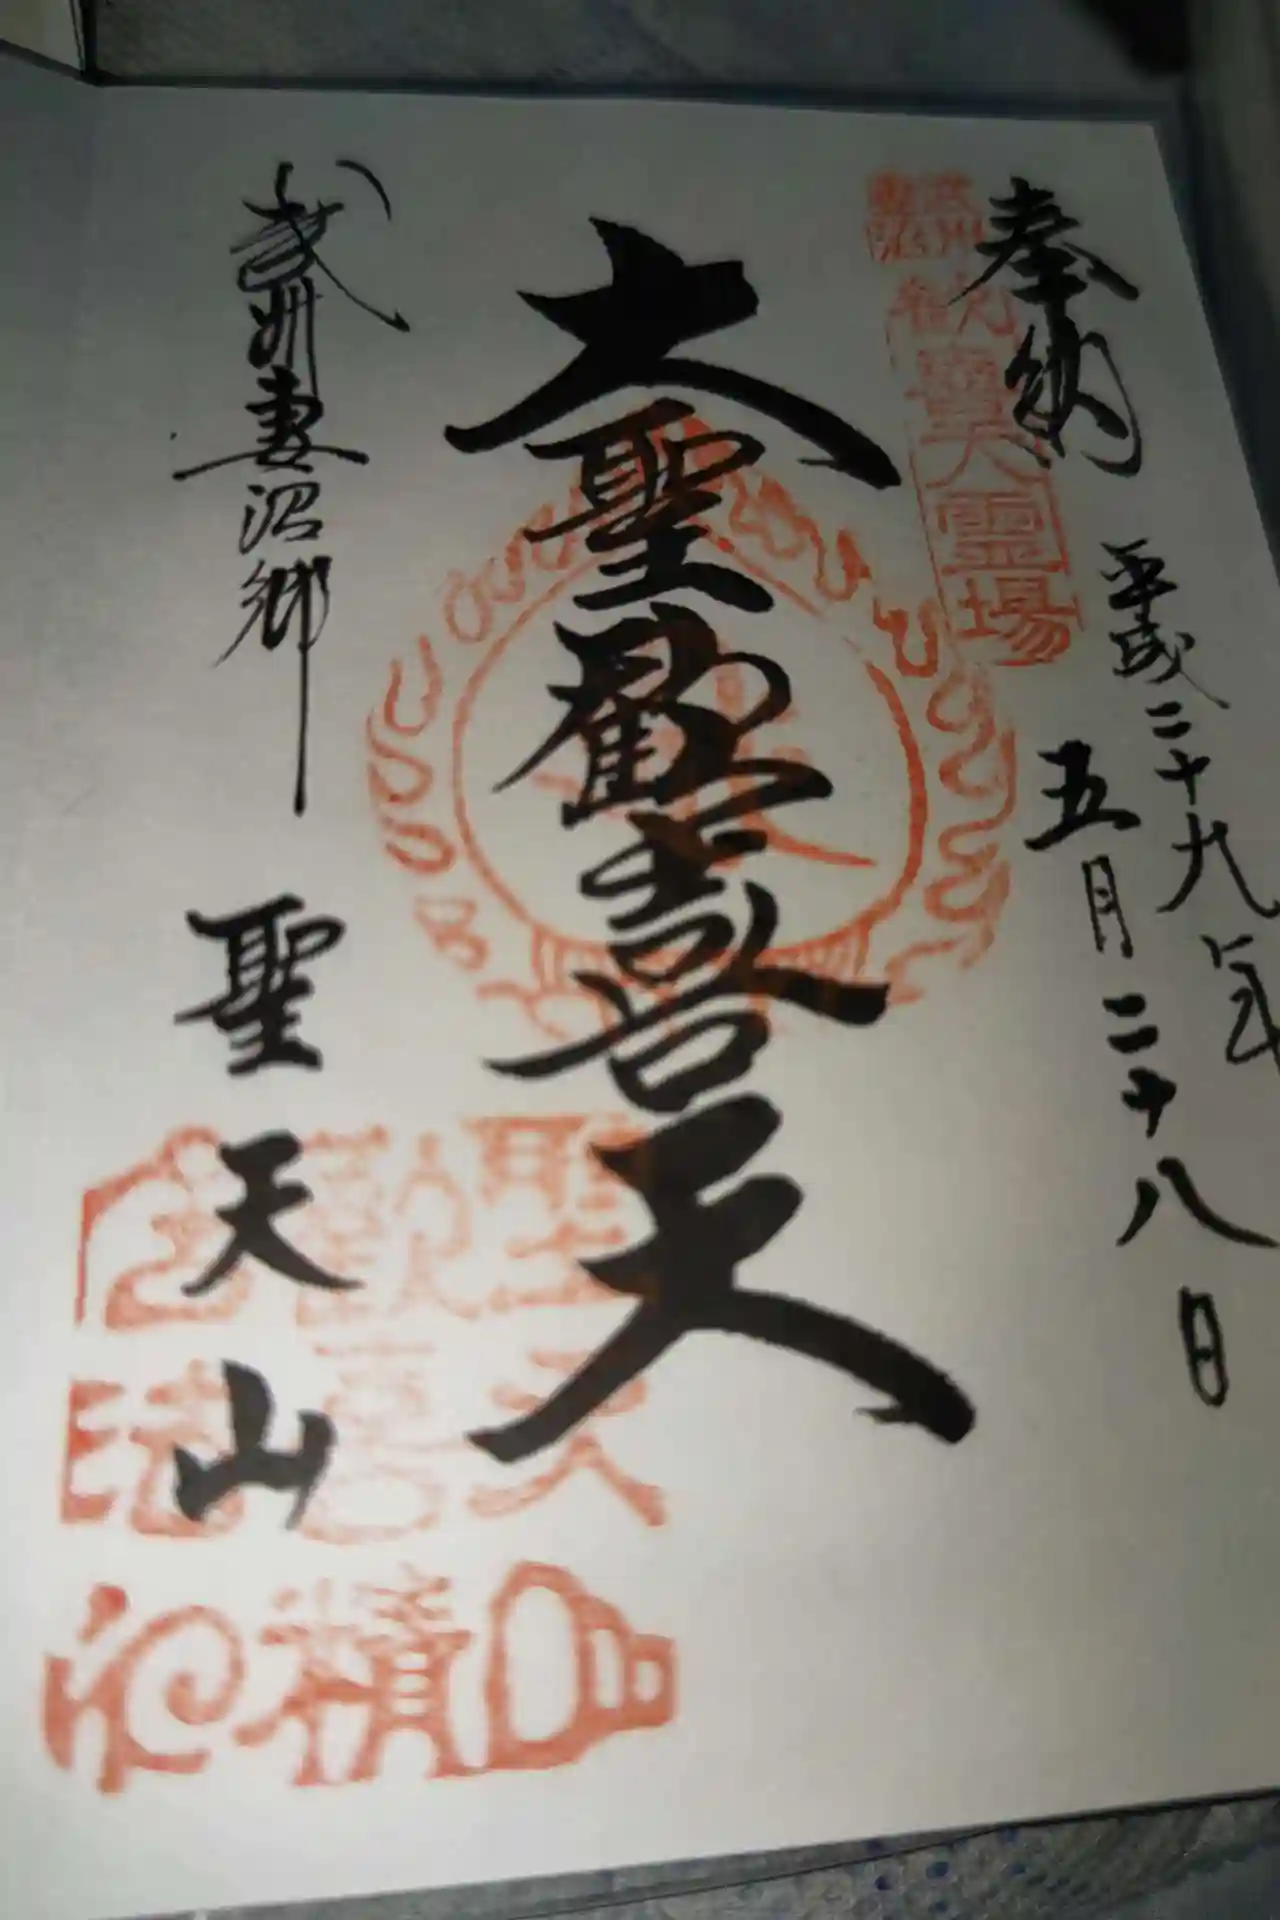 奉納
平成二十九年
五月二十八日
大聖歓喜天
武州妻沼郷
聖天山
歓喜天霊場